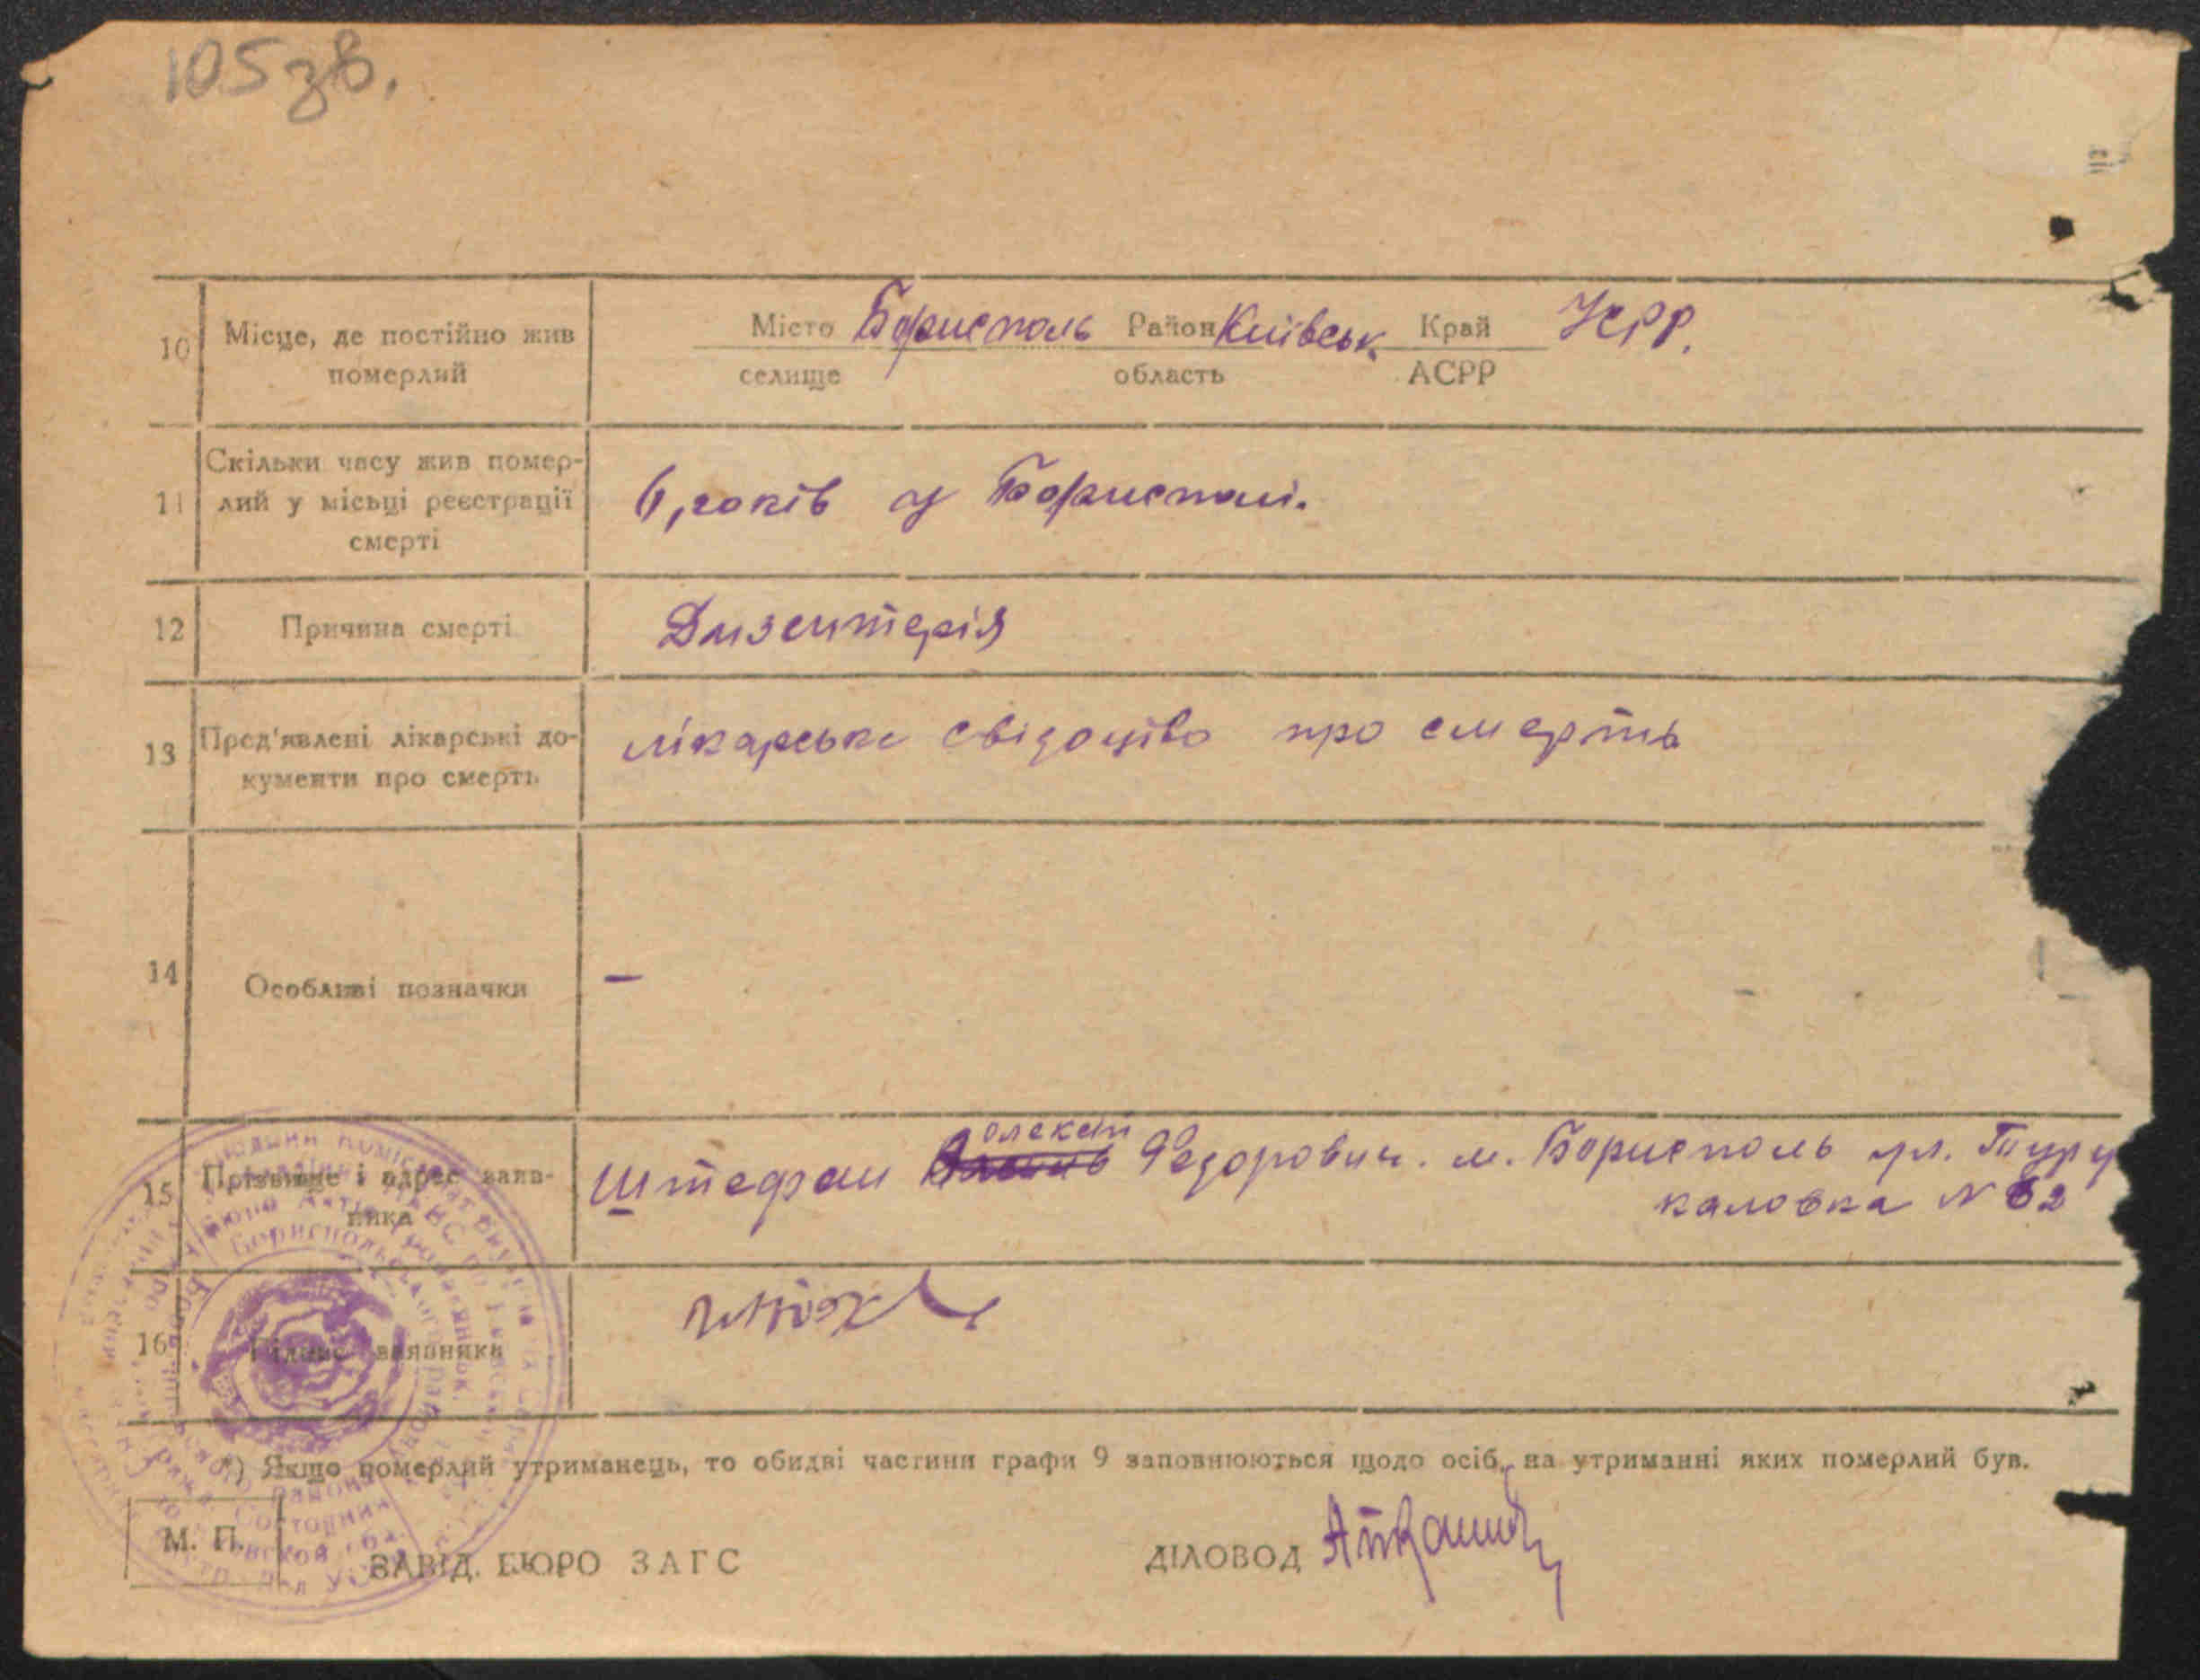 105 зв.
10 Місце, де постійно жив померлий
Місто Бориспель Район Київськ. Край УСРР.
селище область АСРР
11 Скільки часу жив помер-
лий у місьці реєстрації
смерті
6 років у Бориспілі.
12 Причина смерті
Дизентерія
13 Пред'явлені лікарські до-
кументи про смерть
лікарське свідоцтво про смерть
14 Особливі позначки
–
15 Прізвище і адрес заяв-
ника
Штефан Олексій Федорович. м. Борисполь ул.
каловка № 62
16 Підпис заявника
*) Якщо померлий утриманець, то обидві частини графи 9 заповнюються щодо осіб, на утриманні яких померлий був.
М. П.
ЗАВІД. БЮРО ЗАГС ДІЛОВОД